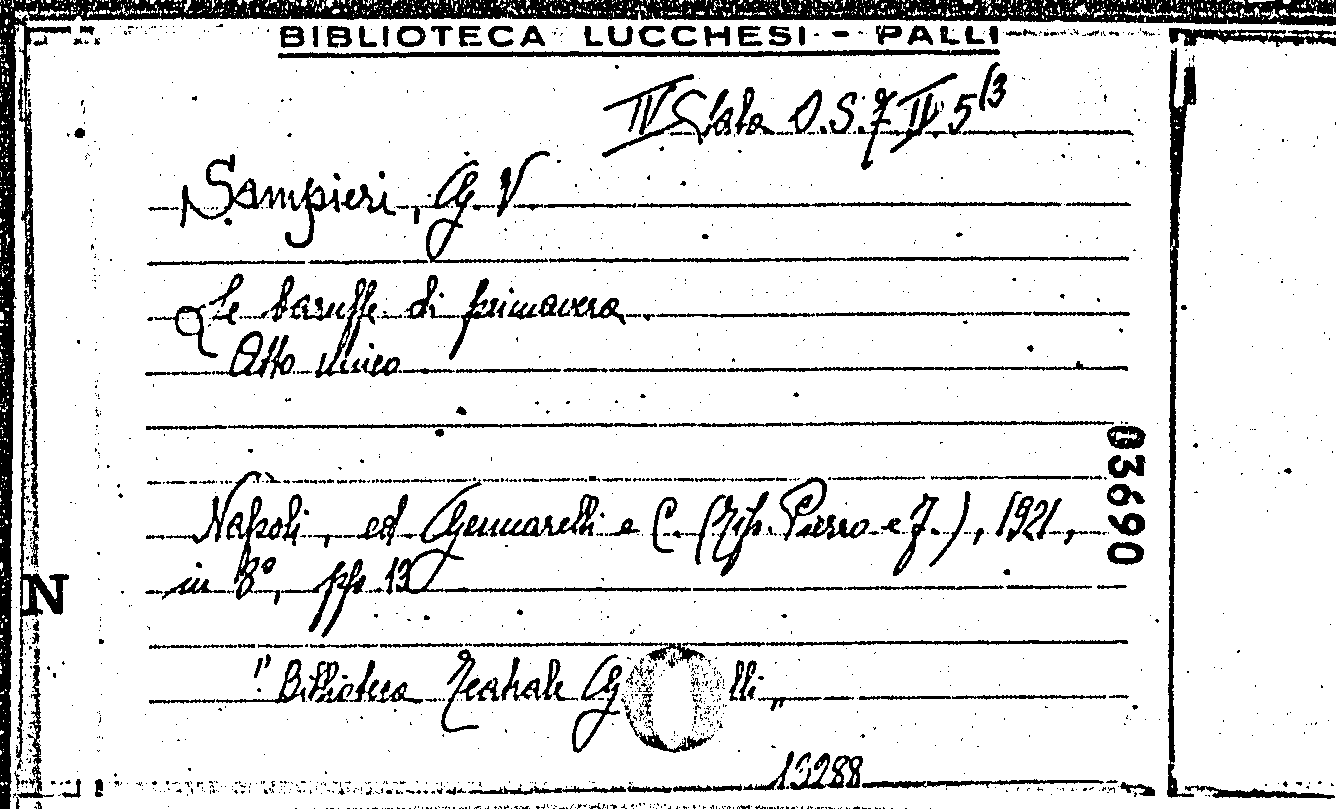 BIBLIOTECA LUCCHESI - PALLI
IV Sala O.S.7 IV. 5/3
Sampieri, G. V.
Le baruffe di primavera.
Atto unico.
Napoli, ed Gennarelli e C. (Tip. Pierro e F.), 1921,
in 8°, pp. 19
"Biblioteca Teatrale G lli"
13288
03690
N